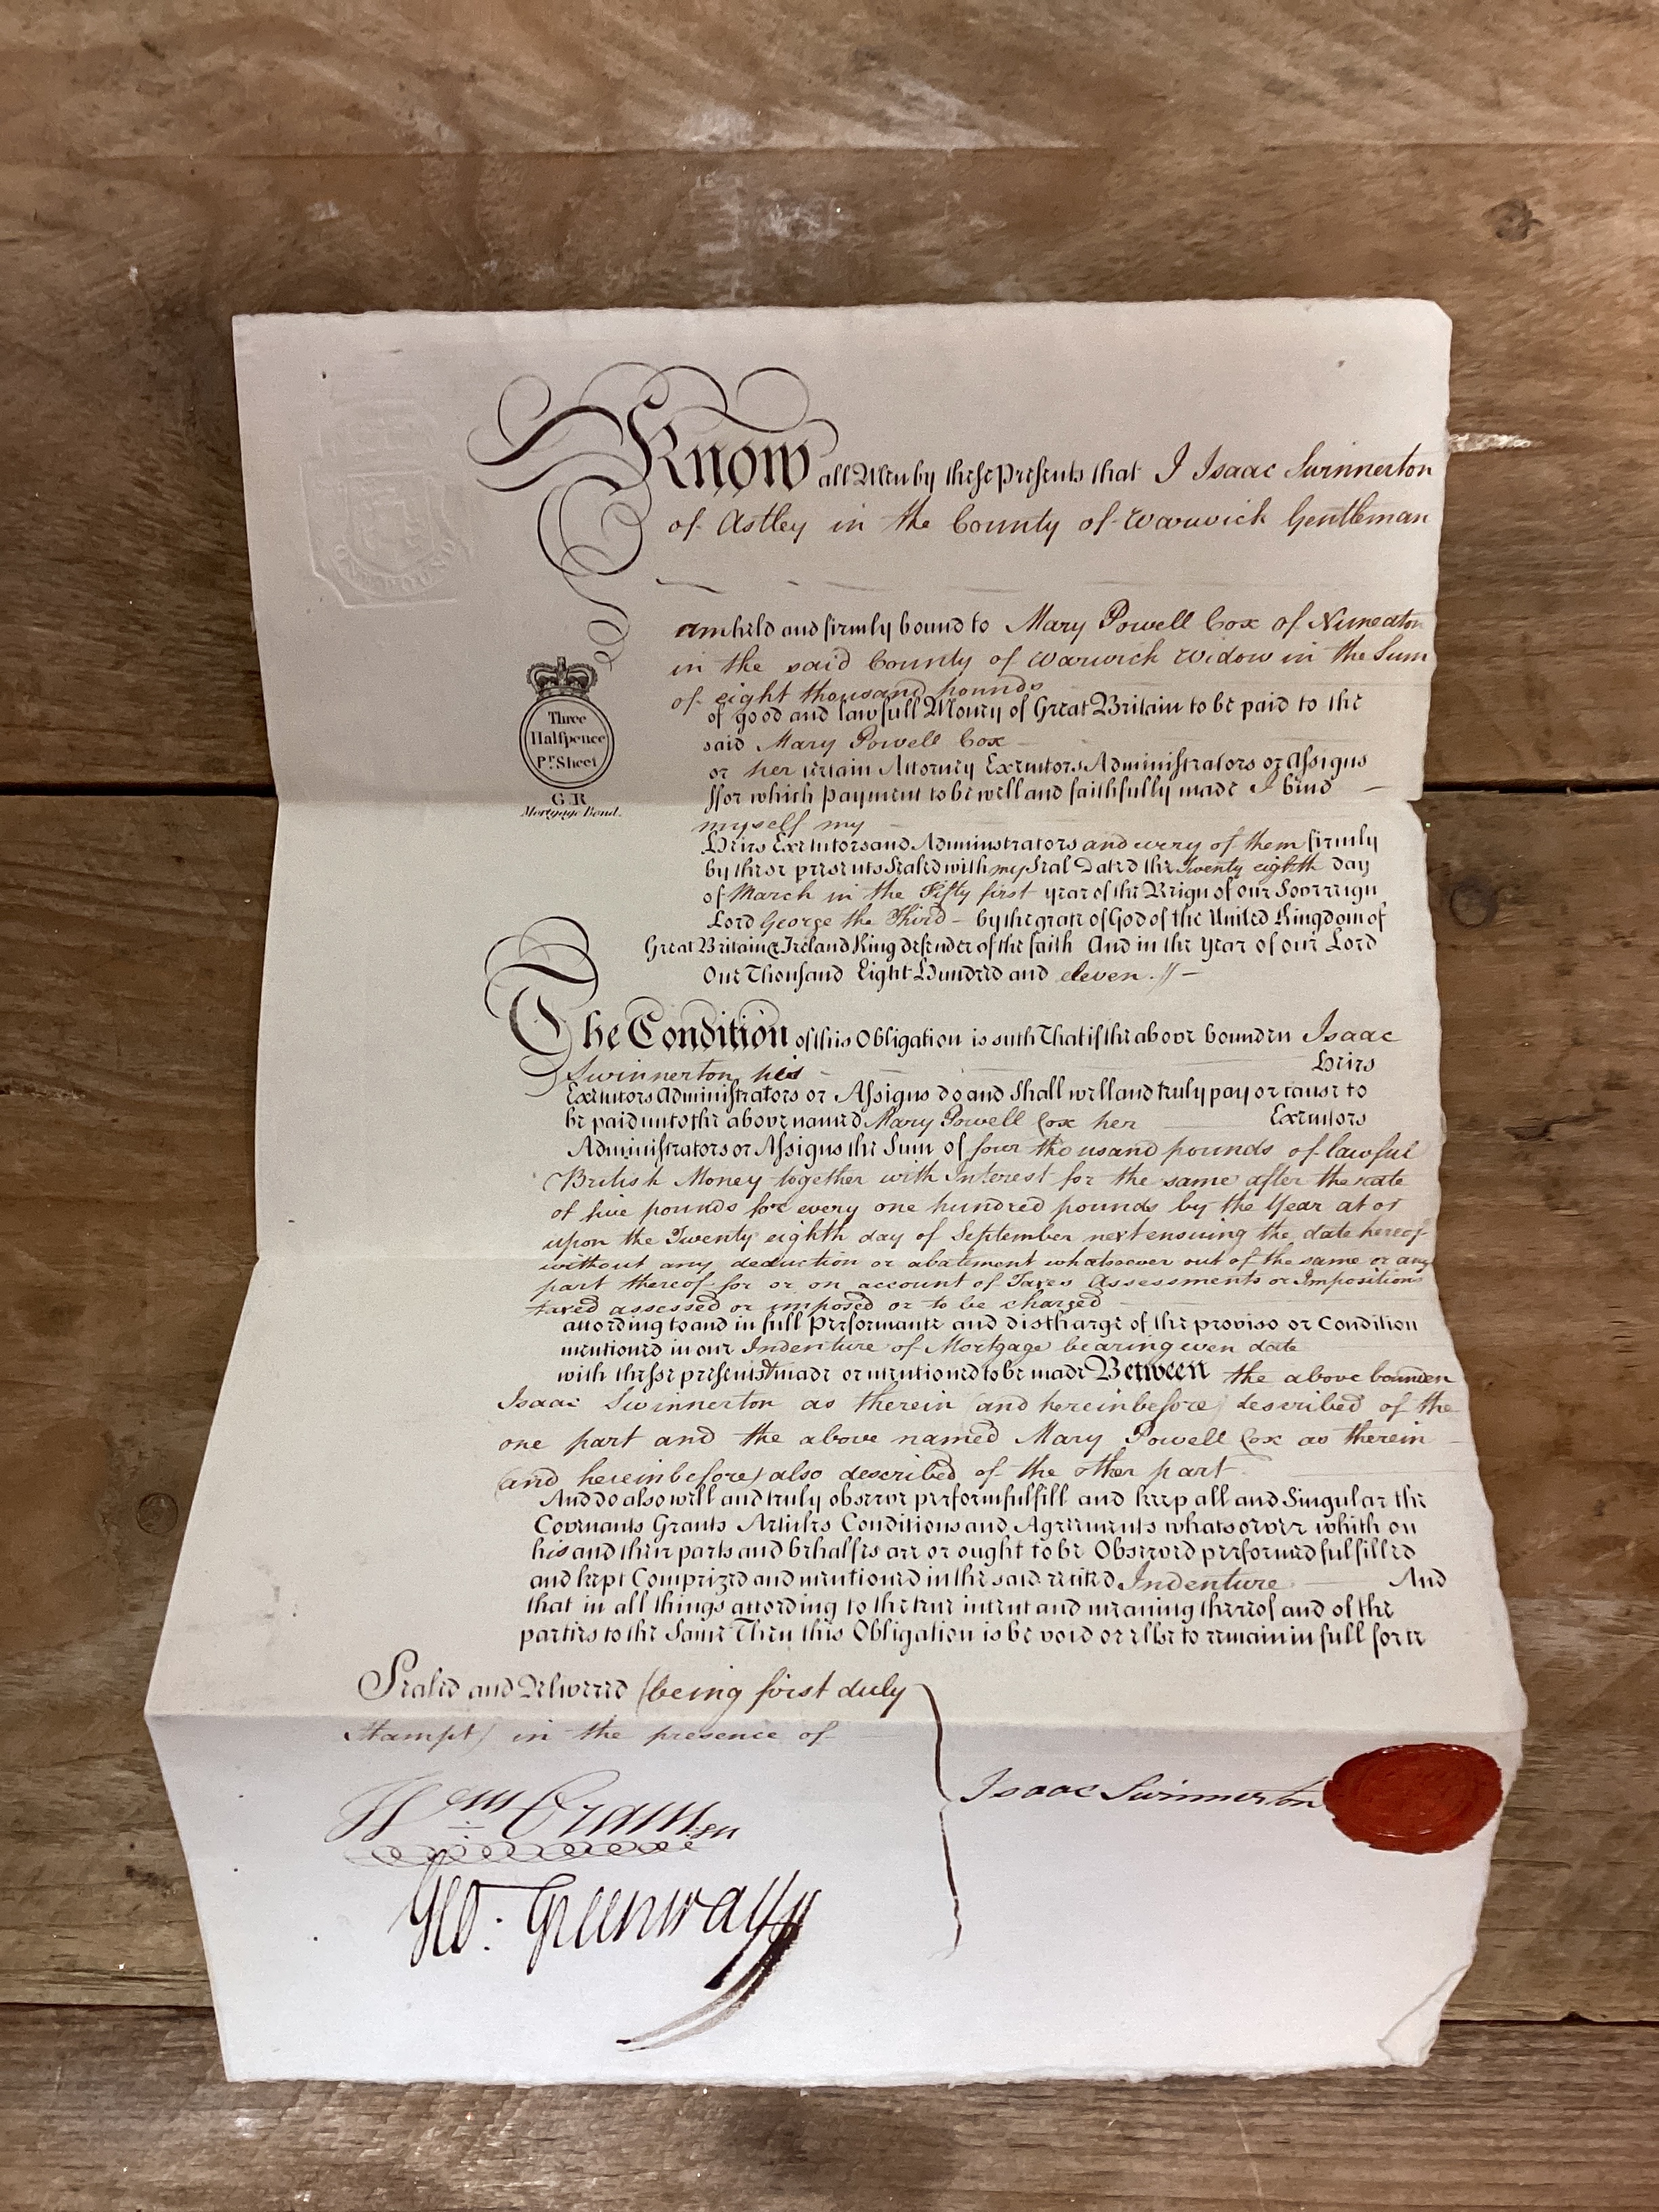 Know all Men by these Presents that I Isaac Swinnerton
of Astley in the County of Warwick Gentleman
am held and firmly bound to Mary Powell Cox of Nuneaton
in the said County of Warwick Widow in the Sum
of eight thousand pounds
of good and lawfull Money of Great Britain to be paid to the
said Mary Powell Cox
or her certain Attorney Executors Administrators or Assigns
ffor which Payment to be well and faithfully made I bind
myself my
Heirs Executors and Administrators and every of them firmly
by these presents Sealed with my Seal Dated the Twenty eighth day
of March in the Fifty first year of the Reign of our Sovereign
Lord George the Third – by the grace of God of the United Kingdom of
Great Britain & Ireland King defender of the faith And in the Year of our Lord
One Thousand Eight Hundred and eleven. //–
Three
Halfpence
Pr. Sheet
G R
Mortgage Bond.
The Condition of this Obligation is such That if the above bounden Isaac
Swinnerton his Heirs
Executors Administrators or Assigns do and Shall well and truly pay or cause to
be paid unto the above named Mary Powell Cox her Executors
Administrators or Assigns the Sum of four thousand pounds of lawful
British Money together with Interest for the same after the rate
of five pounds for every one hundred pounds by the Year at or
upon the Twenty eighth day of September next ensuing the date hereof
without any deduction or abatement whatsoever out of the same or any
part thereof for or on account of Taxes Assessments or Impositions
taxed assessed or imposed or to be charged
according to and in full Performance and discharge of the proviso or Condition
mentioned in our Indenture of Mortgage bearing even date
with these presents made or mentioned to be made Between the above bounden
Isaac Swinnerton as therein (and hereinbefore) described of the
one part and the above named Mary Powell Cox as therein
(and hereinbefore) also described of the other part
And do also will and truly observe perform fulfill and keep all and Singular the
Covenants Grants Articles Conditions and Agreements whatsoever which on
his and their parts and behalfes are or ought to be Observed performed fulfilled
and kept Comprized and mentioned in the said recited Indenture And
that in all things according to the true intent and meaning thereof and of the
parties to the Same Then this Obligation is be void or else to remain in full force
Sealed and Delivered (being first duly
Stampt) in the presence of
Isaac Swinnerton
Geo: Greenway